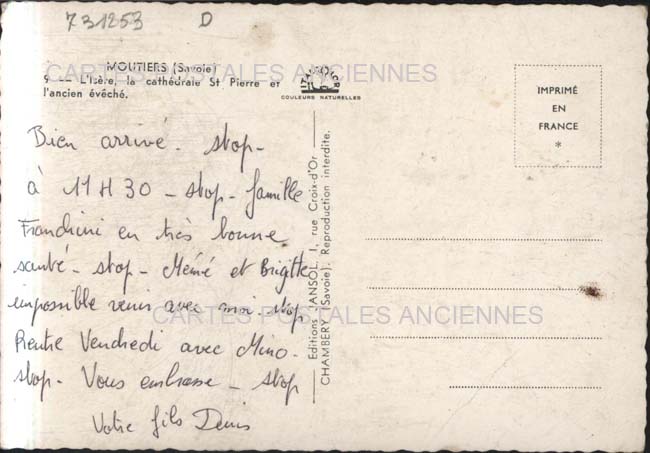 731253 D
MOUTIERS (Savoie)
9 — L'Isère, la cathédrale St Pierre et
l'ancien évêché.
COULEURS NATURELLES
IMPRIMÉ
EN
FRANCE
*
CARTES POSTALES ANCIENNES
Bien arrivé. stop-
à 11H30 - stop- famille
Franchini en très bonne
santé - stop - Mémé et Brigitte
impossible venir avec moi - stop
Rentre Vendredi avec Mino-
stop - Vous embrasse - stop
Votre fils Denis
Editions JANSOL, 1, rue Croix-d'Or
CHAMBERY (Savoie). Reproduction interdite.
CARTES POSTALES ANCIENNES